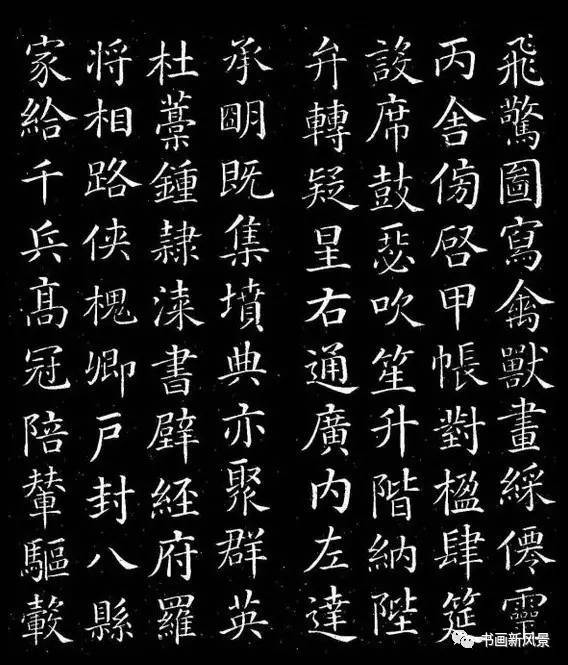 飛驚圖寫禽獸畫綵僊靈
丙舍傍啓甲帳對楹肆筵
設席鼓瑟吹笙升階納陛
弁轉疑星右通廣内左達
承朙既集墳典亦聚群英
杜藁鍾隸漆書壁經府羅
将相路俠槐卿戶封八縣
家給千兵髙冠陪輦驅轂
书画新风景